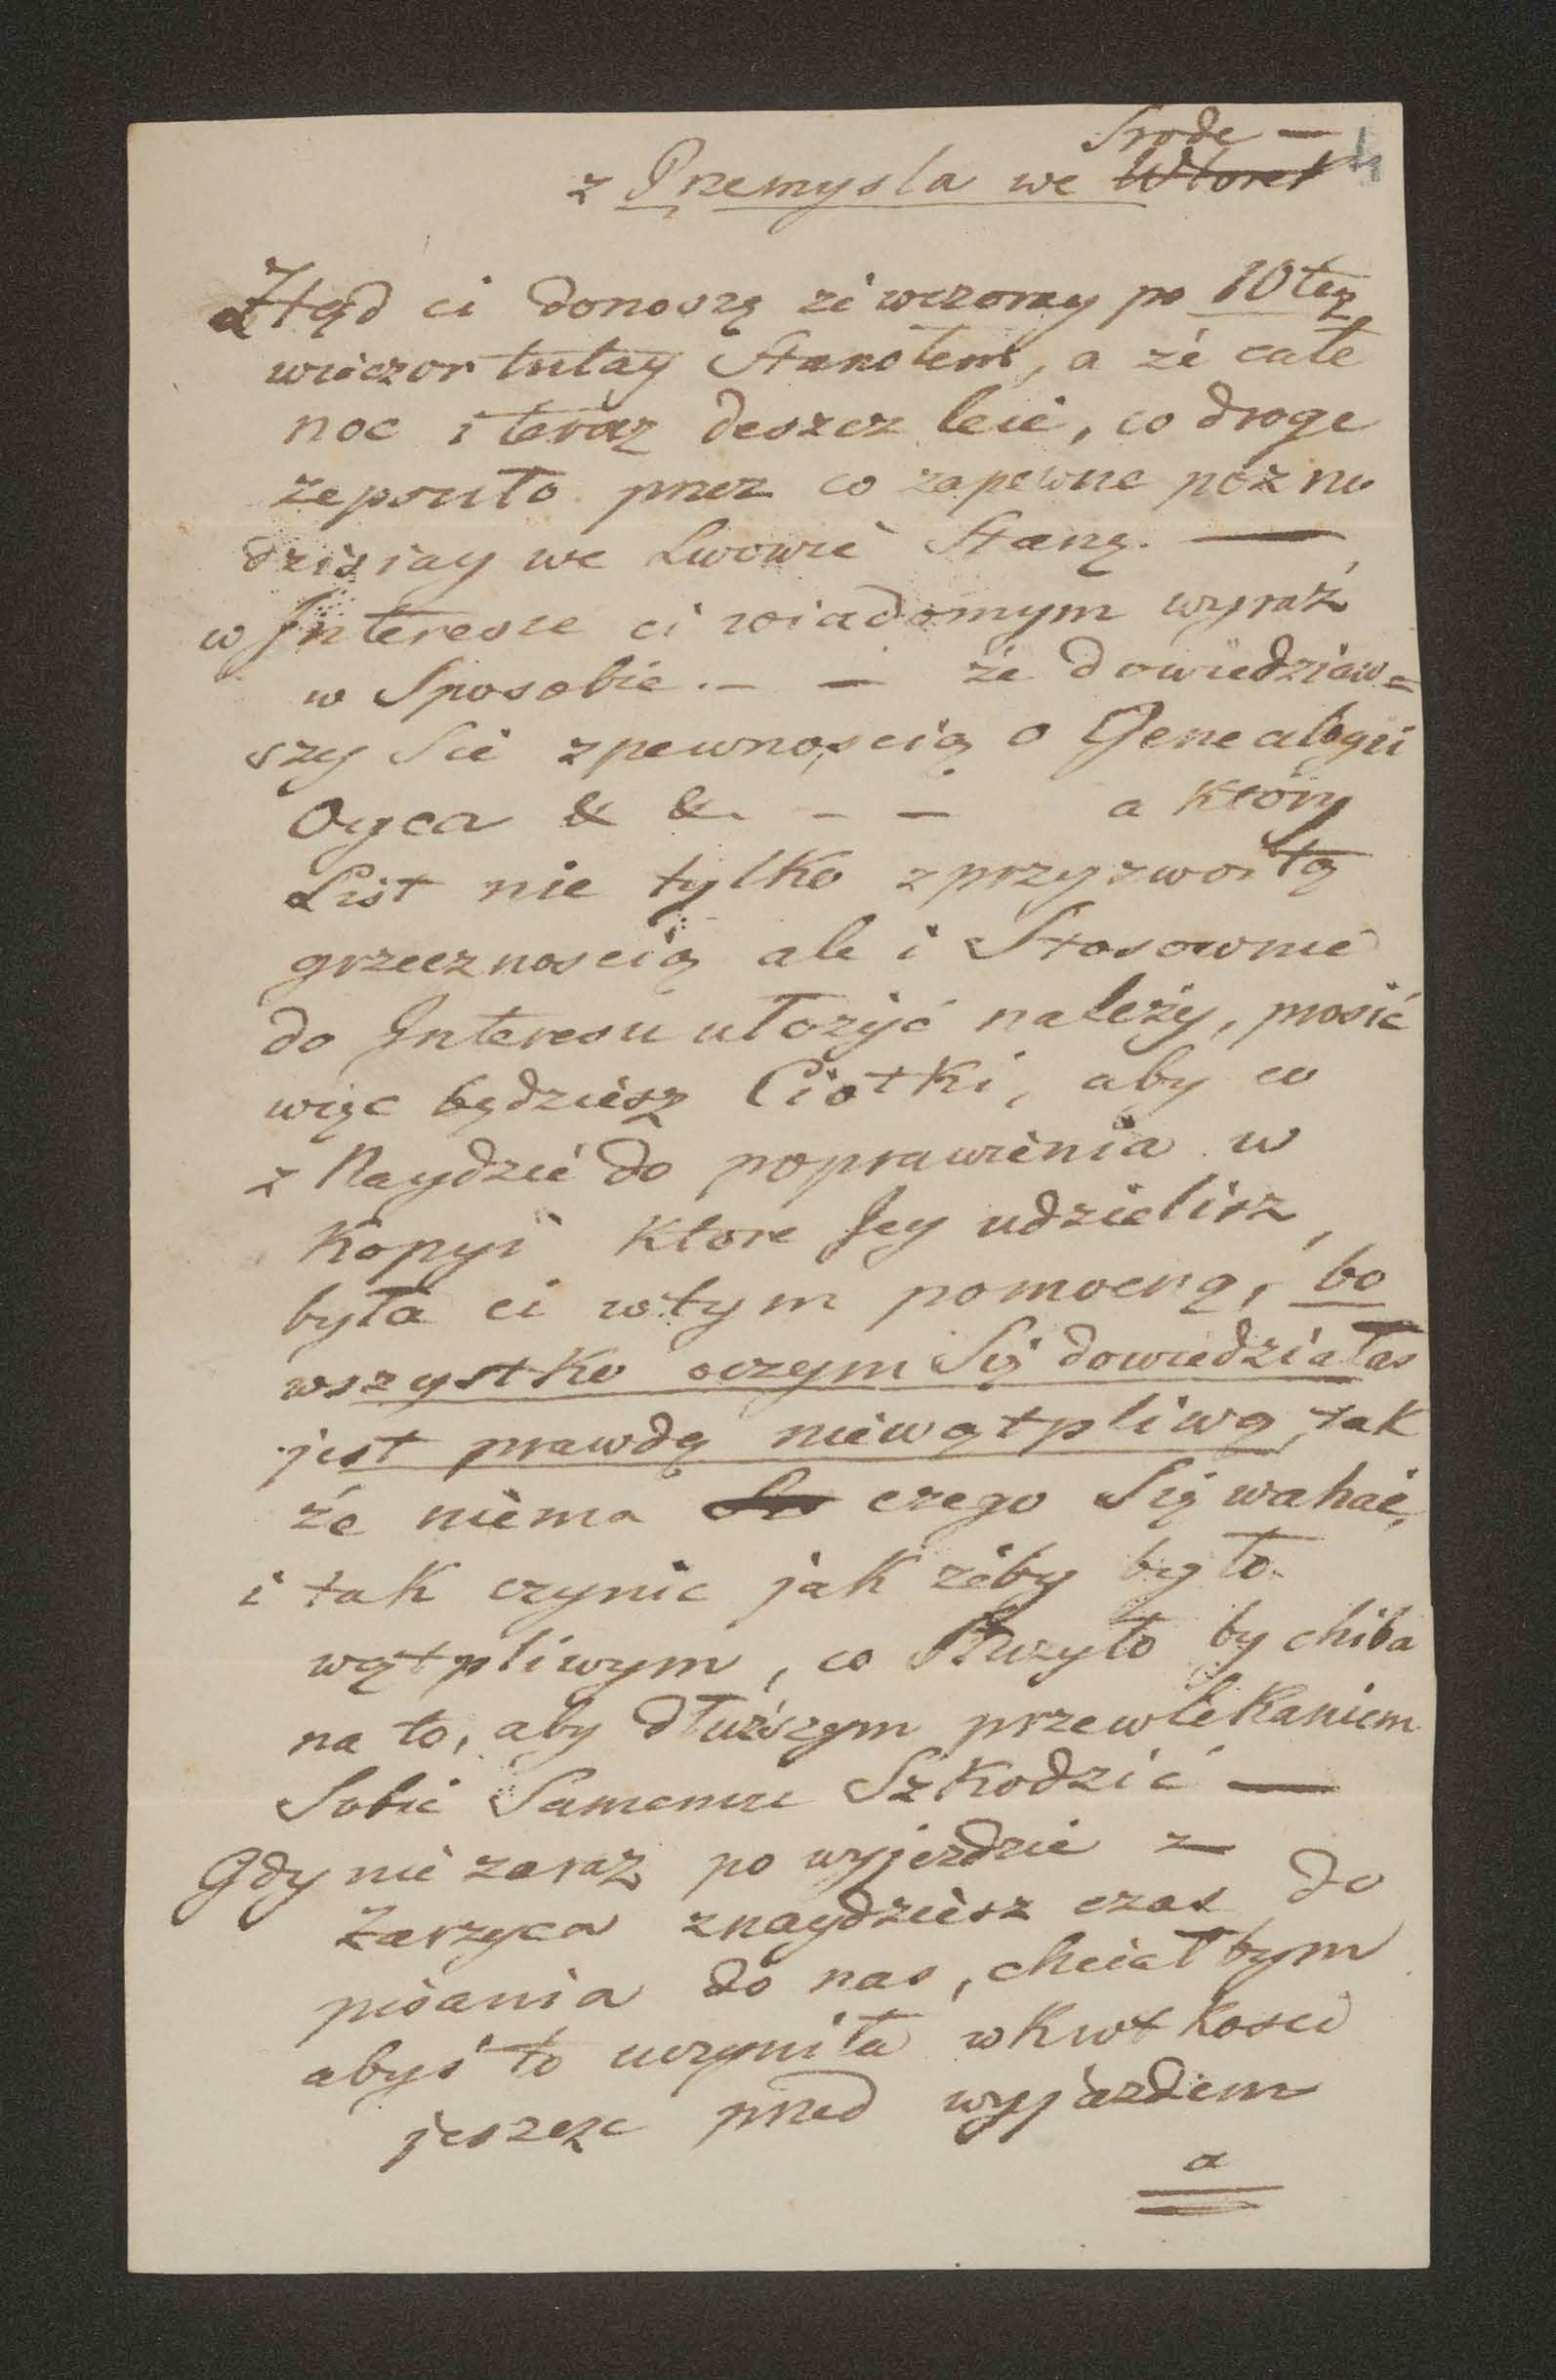 Srode —
z Przemysla we Wtorek
Ztąd ci donoszę że wczoray po 10tey
wieczor tutay Stanołem, a że całe
noc i teraz deszcz leie, co droge
zepsuło przez co zapewne pozno
dzisiay we Lwowie Stanę. —
w Interesie ci wiadomym wyraź
w Sposobie. — — że dowiedziaw=
szy Sie zpewnoscią o Genealogii
Oyca & &. — — a który
List nie tylko zprzyzwoitą
grzecznoscią ale i Stosownie
do Interesu ułożyć należy, prosić
więc będziesz Ciotki, aby co
z Naydzie do poprawienia w
Kopyi ktore Jey udzielisz,
była ci wtym pomocną, bo
wszystko oczym Się dowiedziałas
jest prawdą niewątpliwą, tak
że niema czego Się wahać,
i tak czynic jak żeby było
wątpliwym, co Służyło by chiba
na to, aby dłuższym przewlekaniem
Sobie Samemu Szkodzić —
Gdy nie zaraz po wyjezdzie z
Zarzyca znaydziesz czas do
pisania do nas, chciałbym
abyś to uczyniła wkrotkosci
jeszcze przed wyjazdem
a